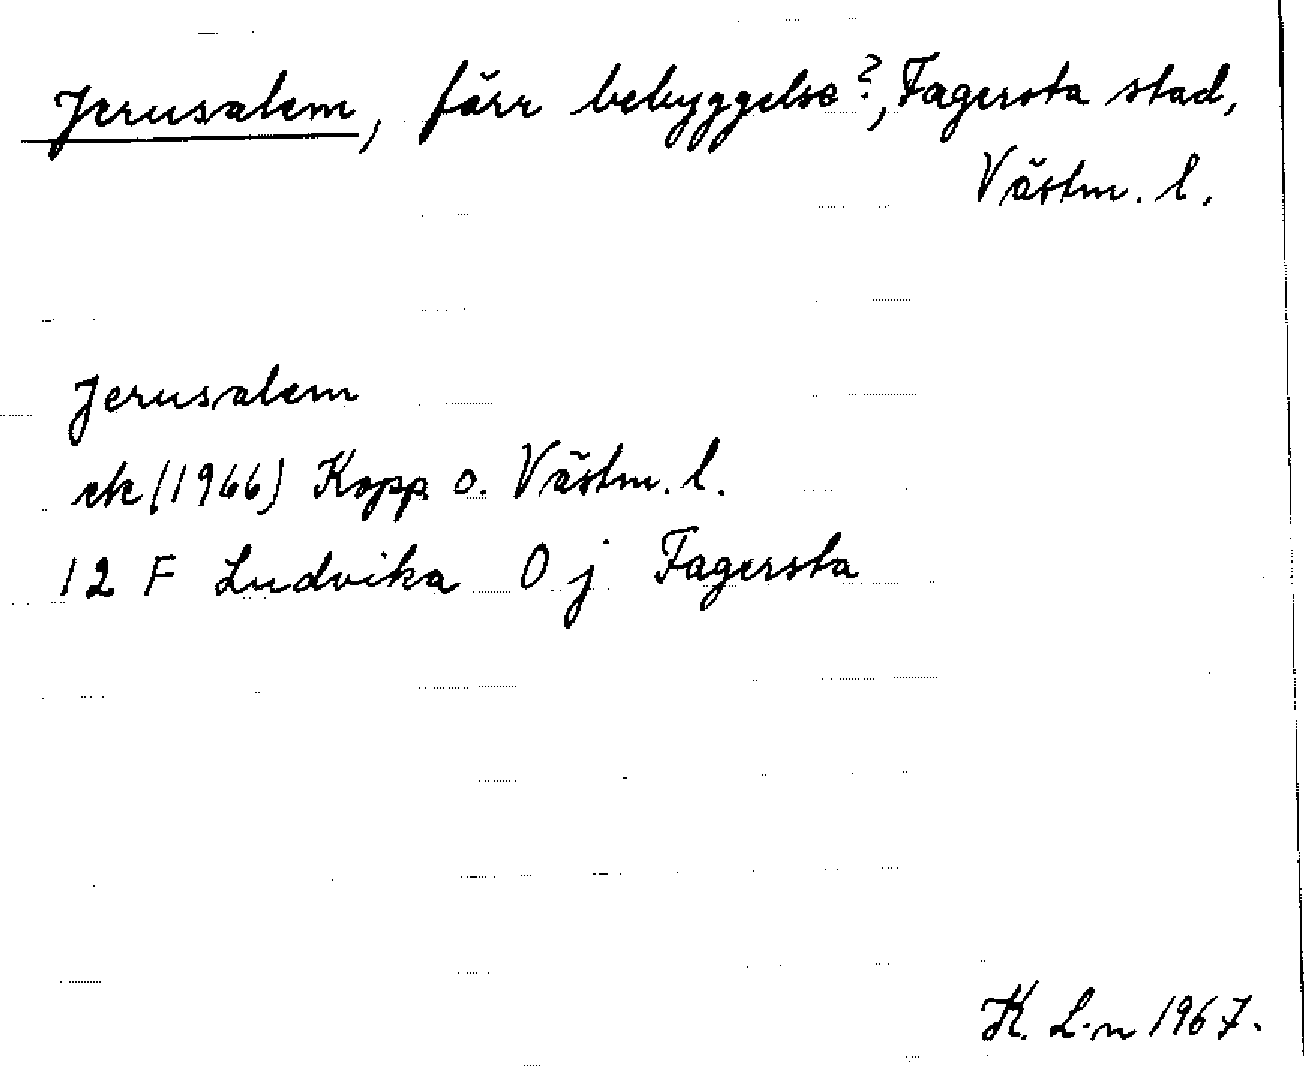 Jerusalem, förr bebyggelse?, Fagersta stad,
Västm. l.
Jerusalem
ek (1966) Kopp. o. Västm. l.
12 F Ludvika 0 j Fagersta
K. L-n 1967.